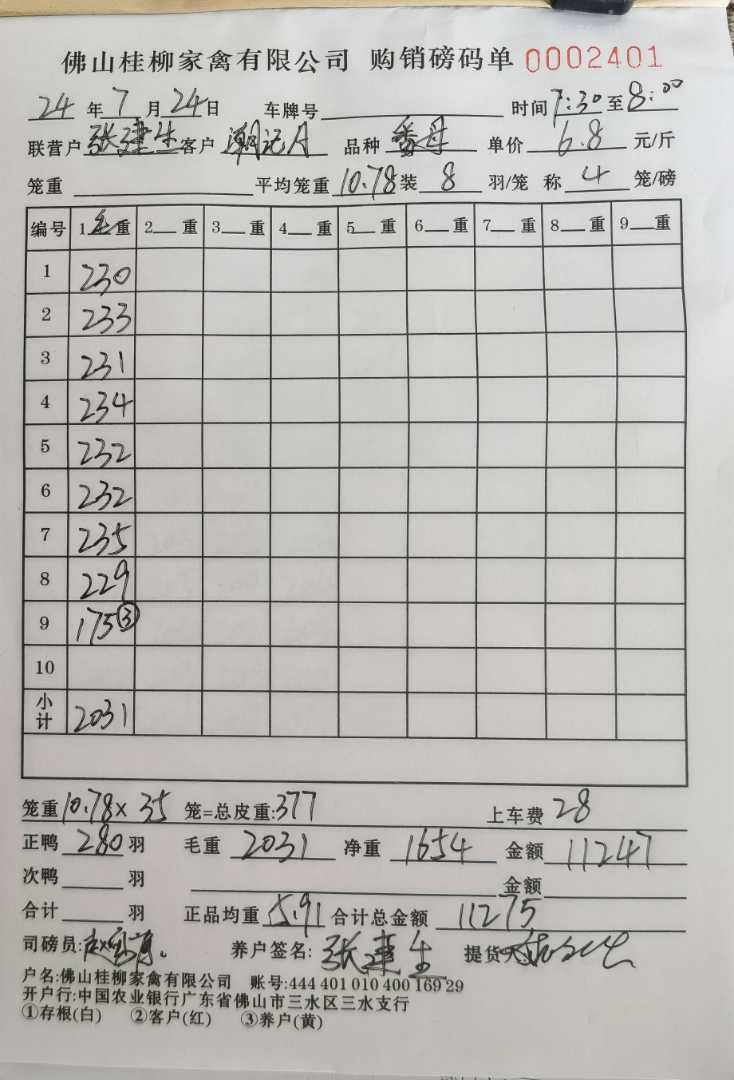 佛山桂柳家禽有限公司 购销磅码单 0002401
24 年 7 月 24 日 车牌号 时间 7:30 至 8:00
联营户 张建生 客户 潮记A 品种 番母 单价 6.8 元/斤
笼重 平均笼重 10.78 装 8 羽/笼 称 4 笼/磅
编号 1 毛 重 2 重 3 重 4 重 5 重 6 重 7 重 8 重 9 重
1 230
2 233
3 231
4 234
5 232
6 232
7 235
8 229
9 175 ③
10
小计 2031
笼重 10.78 × 35 笼=总皮重: 377 上车费 28
正鸭 280 羽 毛重 2031 净重 1654 金额 11247
次鸭 羽 金额
合计 羽 正品均重 5.91 合计总金额 11275
司磅员: 养户签名: 张建生 提货人
户名:佛山桂柳家禽有限公司 账号:444 401 010 400 169 29
开户行:中国农业银行广东省佛山市三水区三水支行
①存根(白) ②客户(红) ③养户(黄)